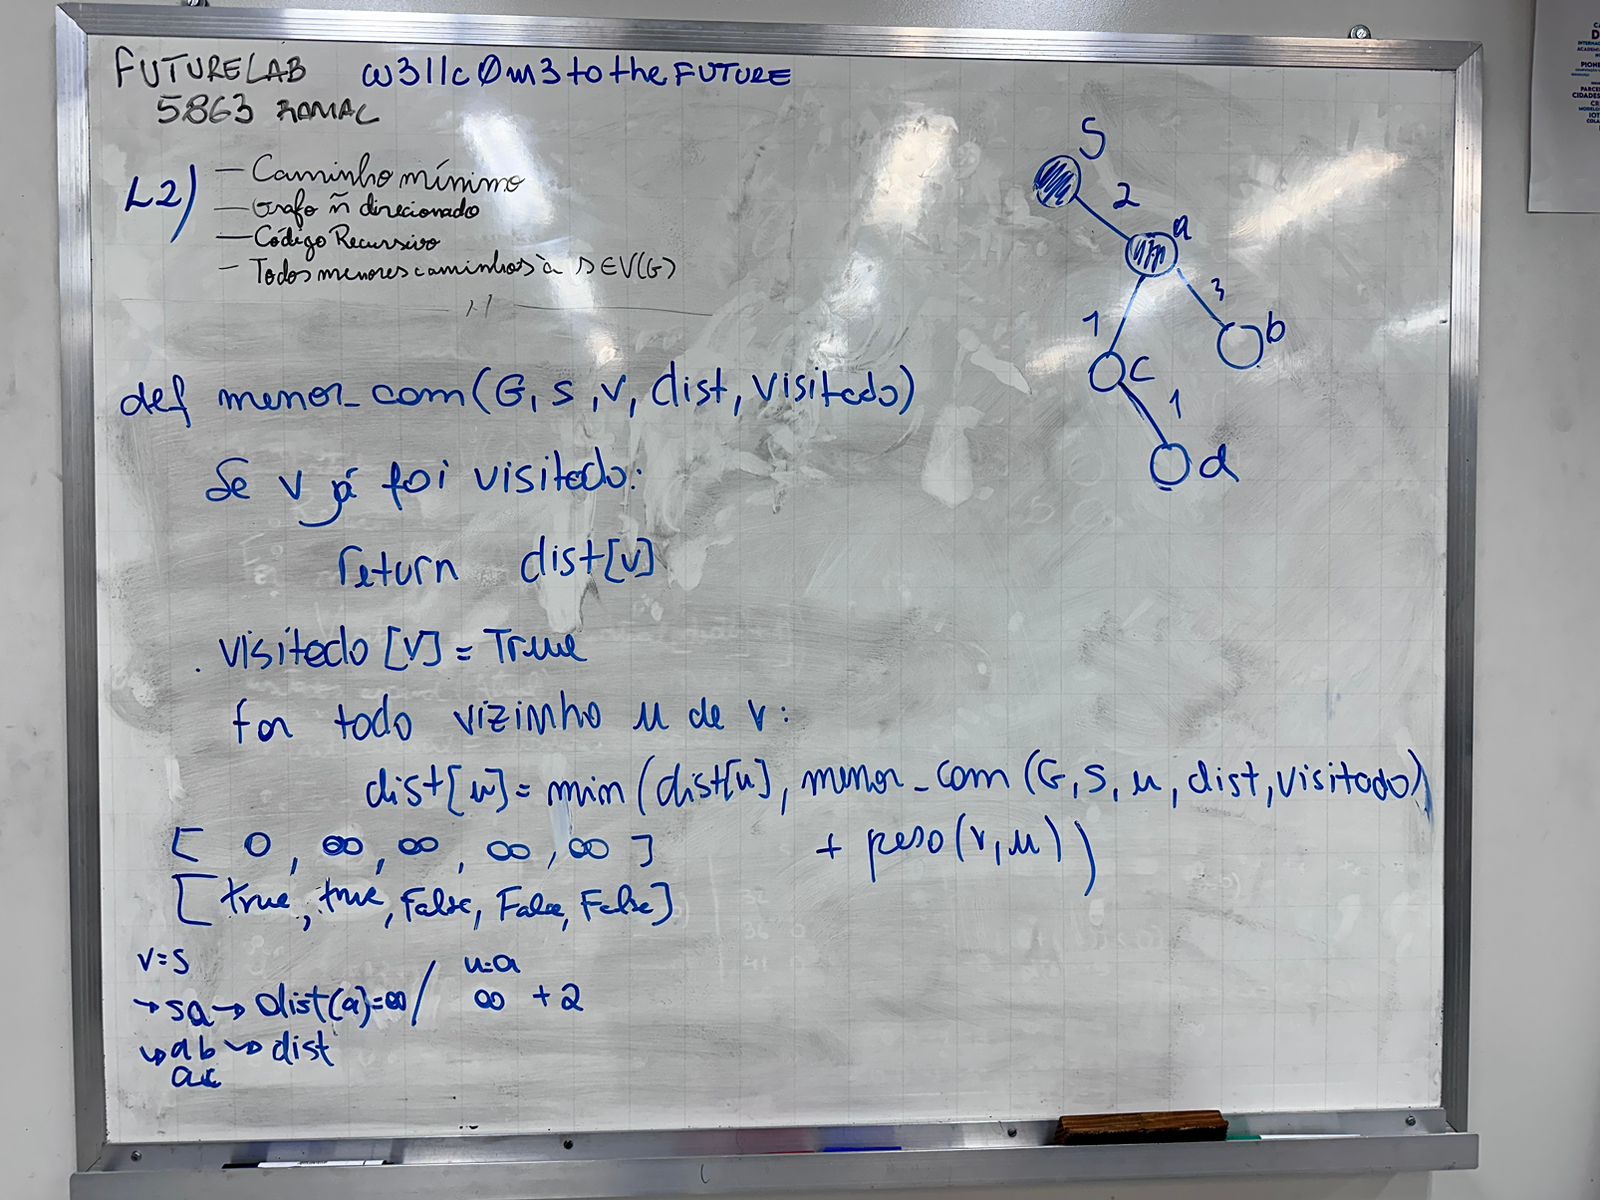 FUTURELAB w3llc0m3totheFUTURE
5863 RAMAL
L2)
— Caminho mínimo
— Grafo ñ direcionado
— Código Recursivo
— Todos menores caminhos à s∈V(G)
def menor_com(G, s, v, dist, visitado)
Se v já foi visitado:
return dist[v]
visitado [v] = True
for todo vizinho u de v:
dist[u] = min(dist[u], menor_com(G, S, u, dist, visitado)
+ peso(v, u))
[ 0, ∞, ∞, ∞, ∞ ]
[ true, true, False, False, False]
v=s u=a
→ sa → dist(a)=∞ / ∞ + 2
↳ ab → dist
ac
S
2
a
1 3
b
c
1
d
PIONE
CIDADES